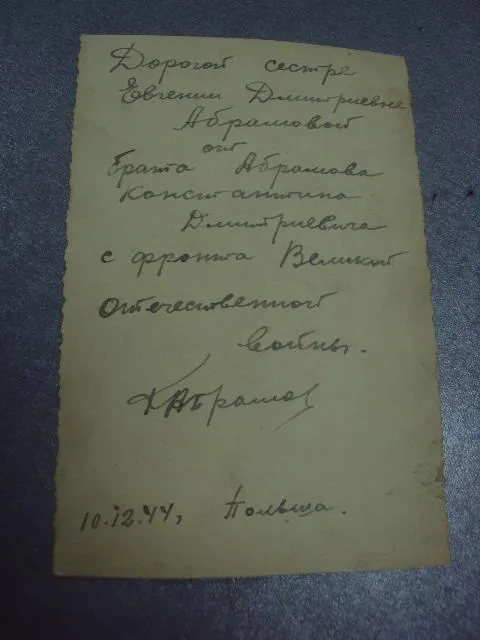 Дорогой сестре
Евгении Дмитриевне
Абрамовой
от
брата Абрамова
Константина
Дмитриевича
с фронта Великой
Отечественной
войны.
КАбрамов
10.12.44, Польша.